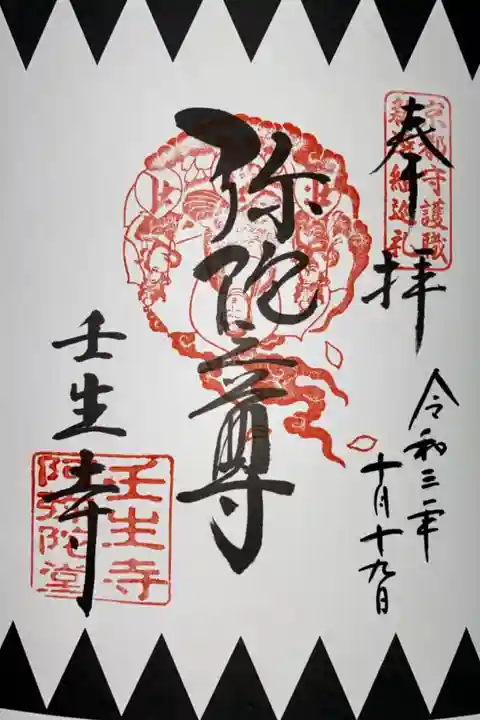 奉拝
京都守護職
新撰組巡礼
令和三年
十月十九日
弥陀尊
壬生寺
壬生寺
阿弥陀堂